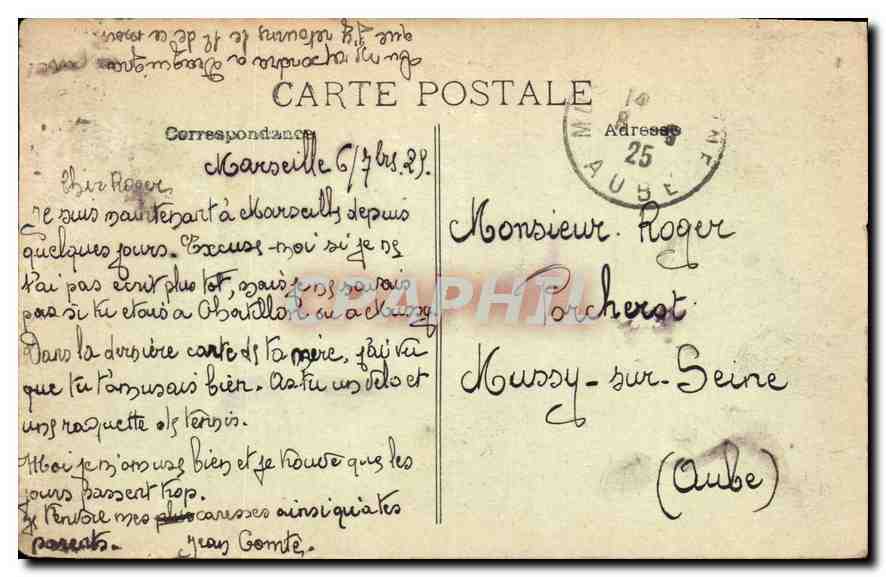 que j'y retourne le 12 de ce mois
CARTE POSTALE
Correspondance
Adresse
14
8
25
AUBE
Marseille 6/7brs.25.
Cher Roger,
Je suis maintenant à Marseille depuis
quelques jours. Excuse-moi si je ne
t'ai pas écrit plus tot, mais je ne savais
pas si tu etais à Chatillon ou à Mussy
Dans la dernière carte de ta mère, j'ai vu
que tu t'amusais bien. As tu un velo et
une raquette de tennis.
Moi je m'amuse bien et je trouve que les
jours passent trop.
Je t'envoie mes plus caresses ainsi qu'à tes
parents. Jean Comte.
Monsieur Roger
Porcherot
Mussy-sur-Seine
(Aube)
CPAPHIL